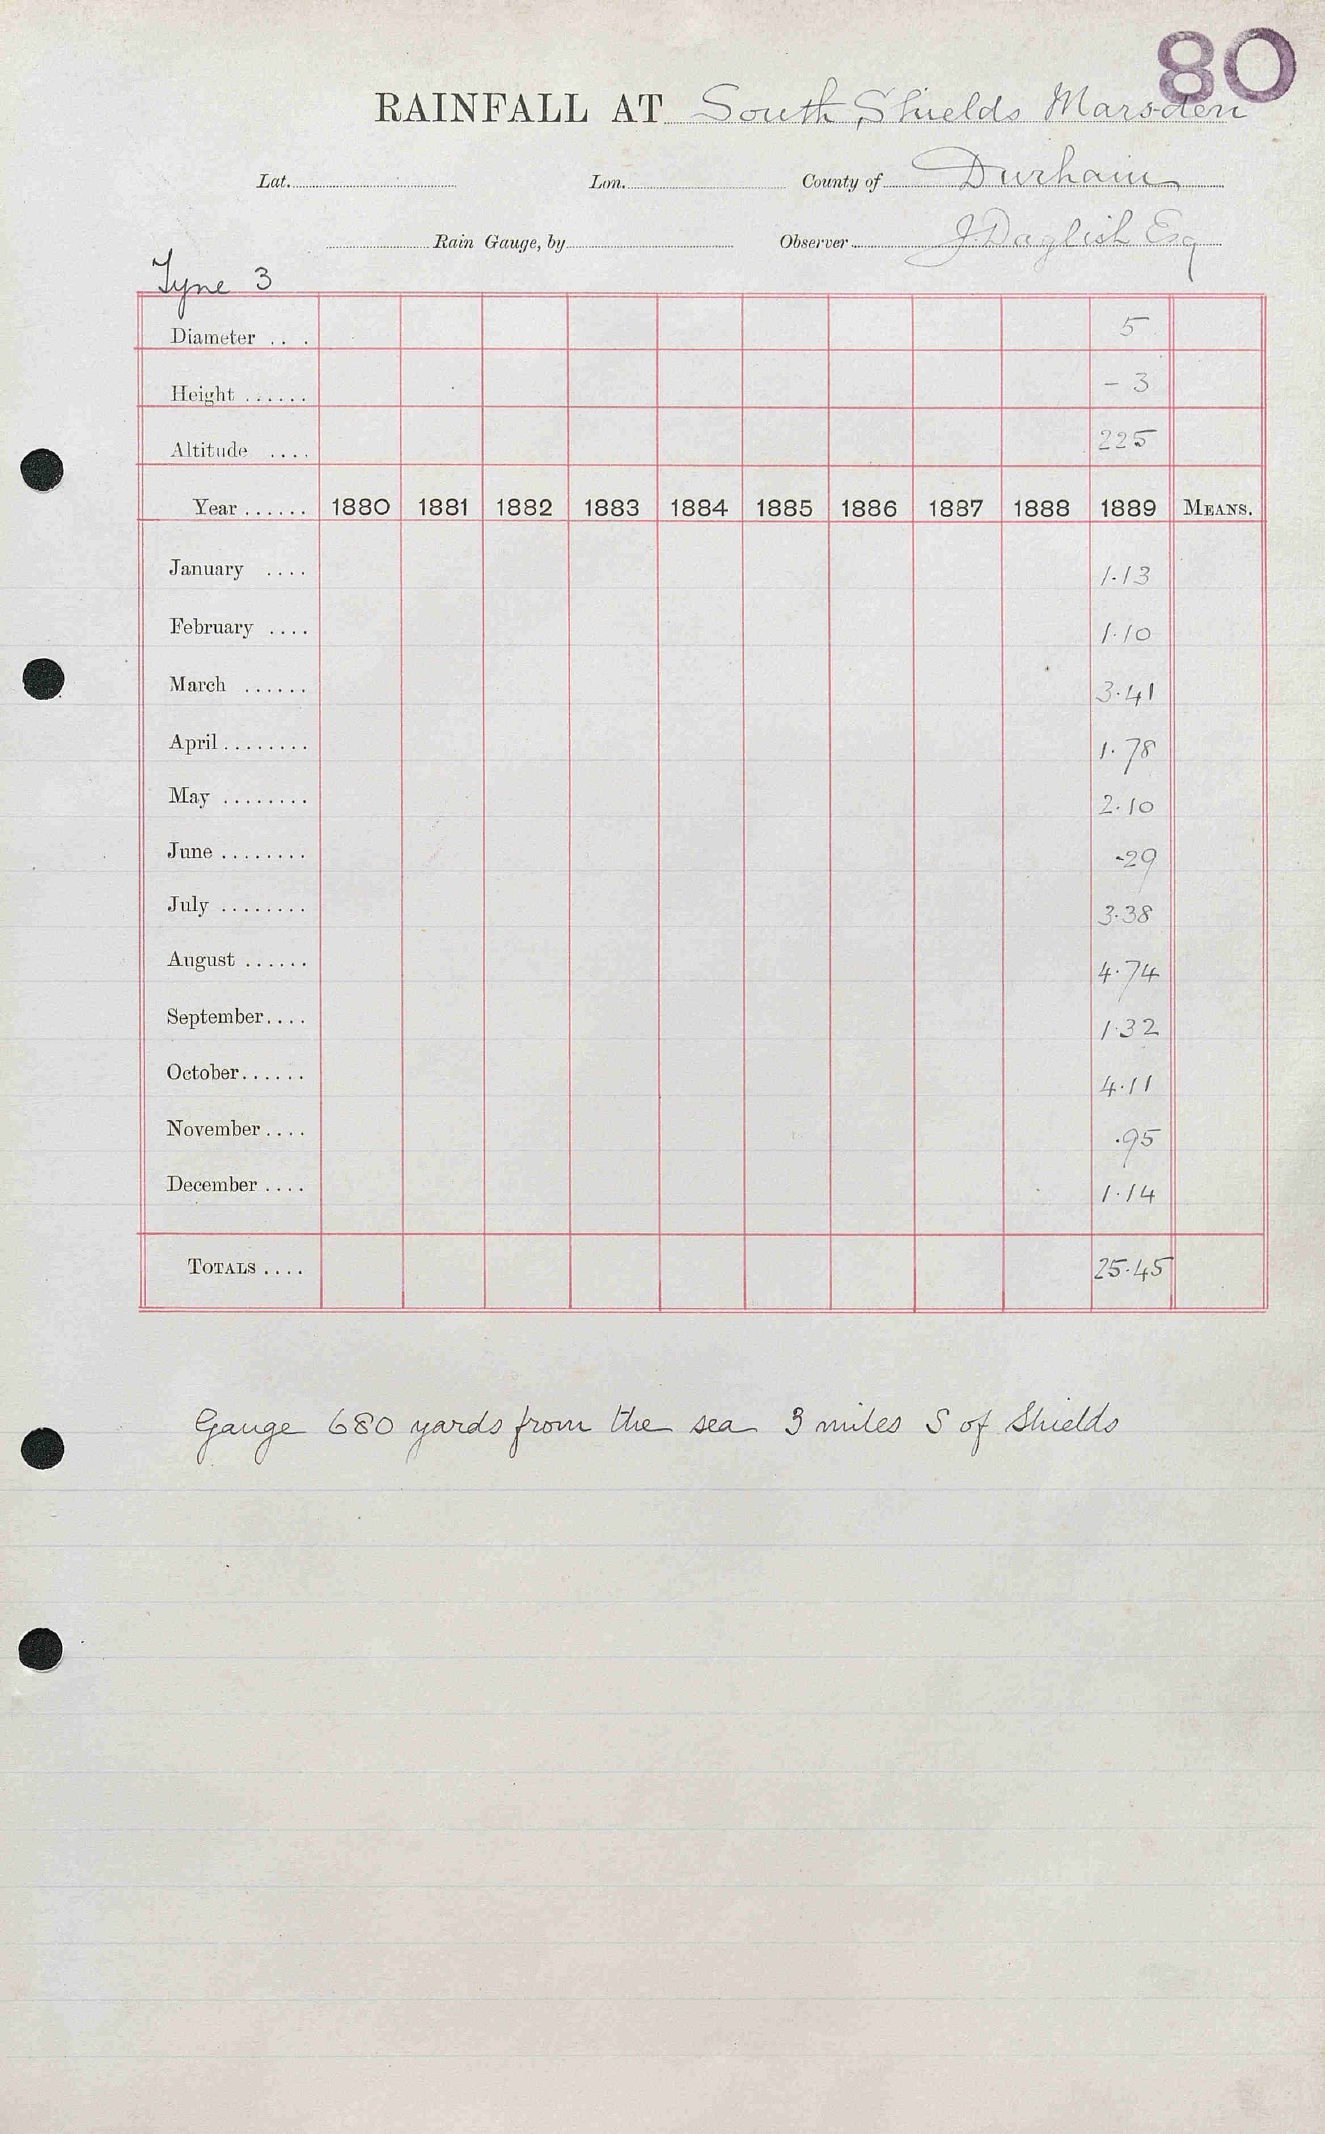 80
RAINFALL AT South Shields Marsden
Lat. Lon. County of Durham
Rain Gauge, by Observer J. Daglish Esq
Tyne 3
Diameter . . . 5
Height ...... - 3
Altitude .... 225
Year ...... 1880 1881 1882 1883 1884 1885 1886 1887 1888 1889 MEANS.
January .... 1.13
February .... 1.10
March ...... 3.41
April ........ 1.78
May ........ 2.10
June ........ .29
July ........ 3.38
August ...... 4.74
September.... 1.32
October...... 4.11
November.... .95
December .... 1.14
TOTALS .... 25.45
Gauge 680 yards from the sea 3 miles S of Shields